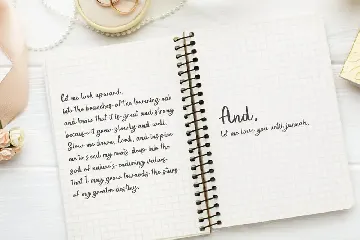 Let me look upward,
into the branches of the towering oak
and know that it is great and strong
because it grew slowly and well.
Slow me down, Lord, and inspire
me to send my roots deep into the
soil of nature's enduring values
that I may grow towards the stars
of my greater destiny.
And,
Let me love you until Jannah.